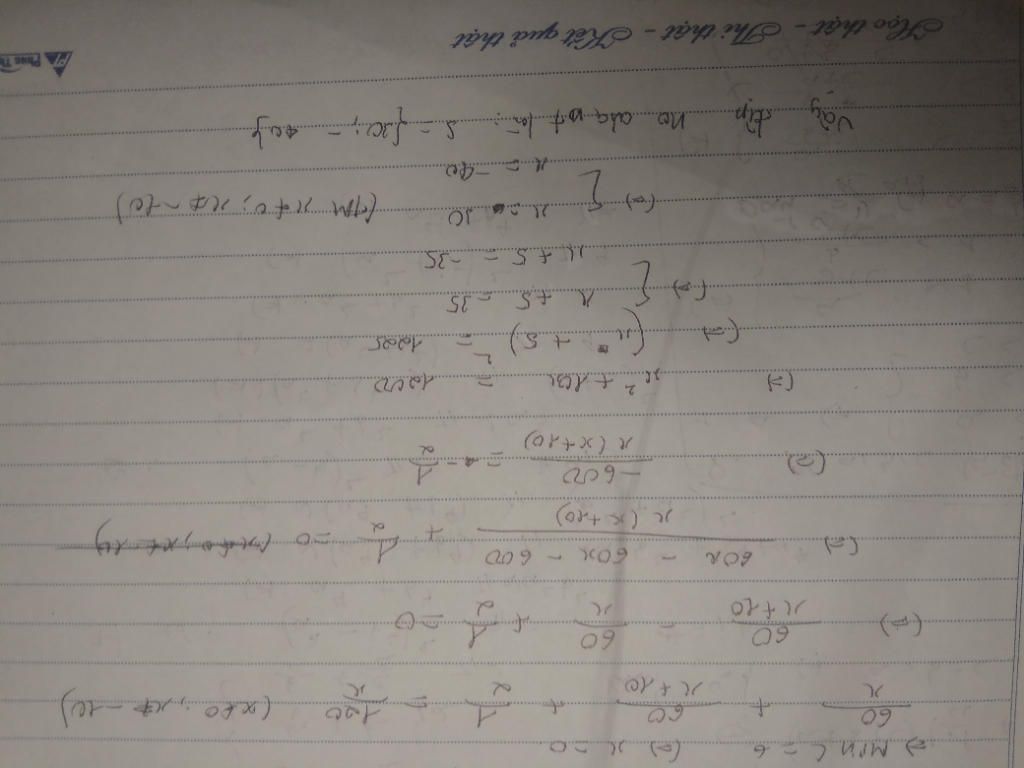 => Min C = 6 (=) x = 0
60/x + 60/(x+10) + 1/2 = 120/x (x≠0; x≠-10)
(=) 60/(x+10) - 60/x + 1/2 = 0
(=) (60x - 60x - 600)/(x(x+10)) + 1/2 = 0 (x≠0, x≠-10)
(=) -600/(x(x+10)) = -1/2
(=) x² + 10x = 1200
(=) (x + 5)² = 1225
(=) [ x + 5 = 35
x + 5 = -35
(=) [ x = 30 (TM x≠0; x≠-10)
x = -40
Vậy tập no của pt là: S = {30; -40}
Học thật - Thi thật - Kết quả thật